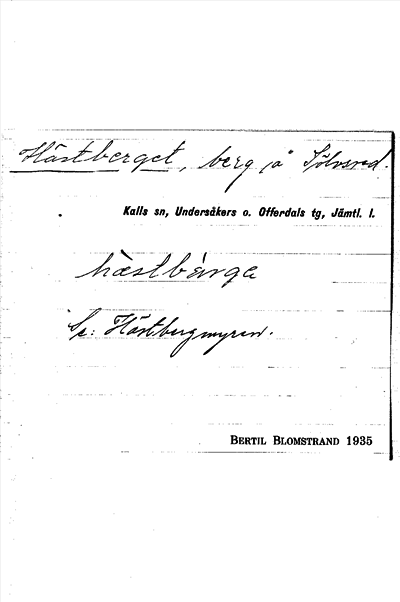 Hästberget, berg på Sölvsved.
Kalls sn, Undersåkers o. Offerdals tg, Jämtl. l.
hästbärge
Se: Hästbergmyren.
BERTIL BLOMSTRAND 1935